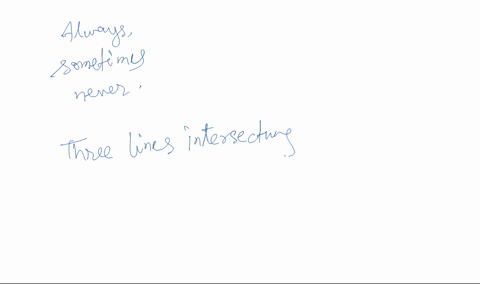 Always,
sometimes
never.
Three lines intersecting